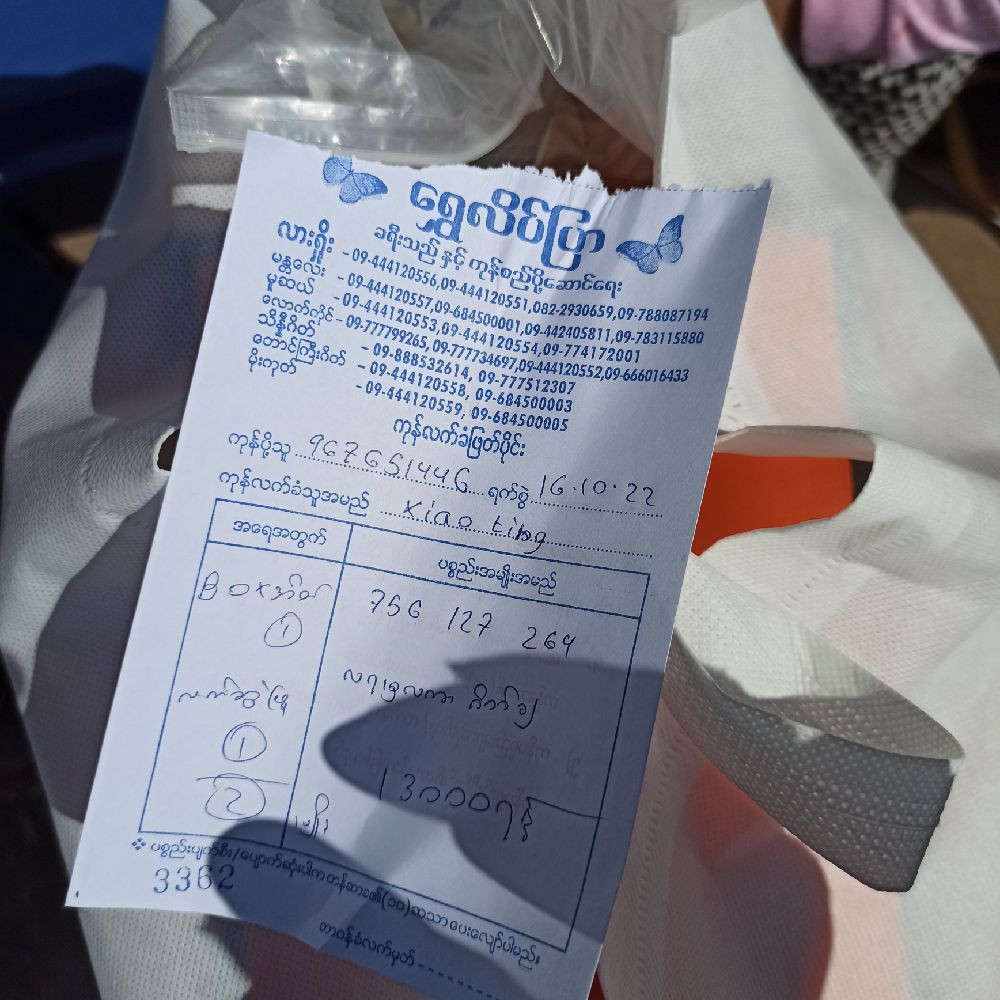 ရွှေလိပ်ပြာ
ခရီးသည် နှင့် ကုန်စည်ပို့ဆောင်ရေး
လားရှိုး - 09-444120556,09-444120551,082-2930659,09-788087194
မန္တလေး - 09-444120557,09-684500001,09-442405811,09-783115880
မူဆယ် - 09-444120553,09-444120554,09-774172001
လောက်ကိုင် - 09-777799265,09-777734697,09-444120552,09-666016433
သိန္နီဂိတ် - 09-888532614, 09-777512307
တောင်ကြီးဂိတ် - 09-444120558, 09-684500003
မိုးကုတ် - 09-444120559, 09-684500005
ကုန်လက်ခံဖြတ်ပိုင်း
ကုန်ပို့သူ 967651446 ရက်စွဲ 16.10.22
ကုန်လက်ခံသူအမည် Xiao ting
အရေအတွက် ပစ္စည်းအမျိုးအမည်
756 127 264
1
1
2
ပစ္စည်းပျက်စီး/ပျောက်ဆုံးပါက တန်ဆာခ၏(၁၀)ဆသာ ပေးလျော်ပါမည်။
3362
တာဝန်ခံလက်မှတ်